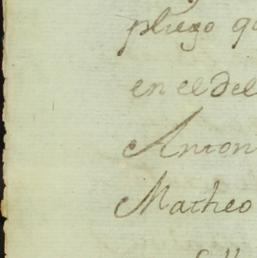 pliego q
en el del
Anton
Matheo